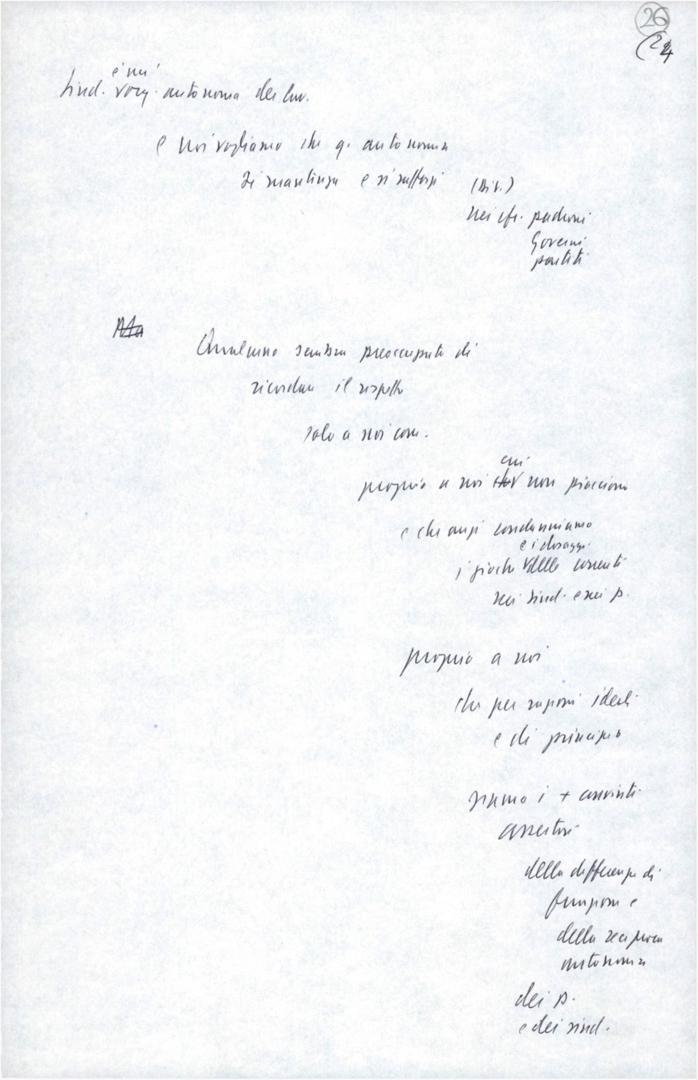 26
(24
è un'
Sind. org. autonoma dei lav.
e noi vogliamo che q. autonomia
si mantenga e si rafforzi (Div.)
nei cfr. padroni
Governi
partiti
Ma
Qualcuno sembra preoccuparsi di
ricordare il rispetto
solo a noi com.
proprio a noi cui non piacciono
e che anzi condanniamo
e i dosaggi
i giochi delle correnti
nei sind. e nei p.
proprio a noi
che per ragioni ideali
e di principio
siamo i + convinti
assertori
della differenza di
funzioni e
della reciproca
autonomia
dei p.
e dei sind.